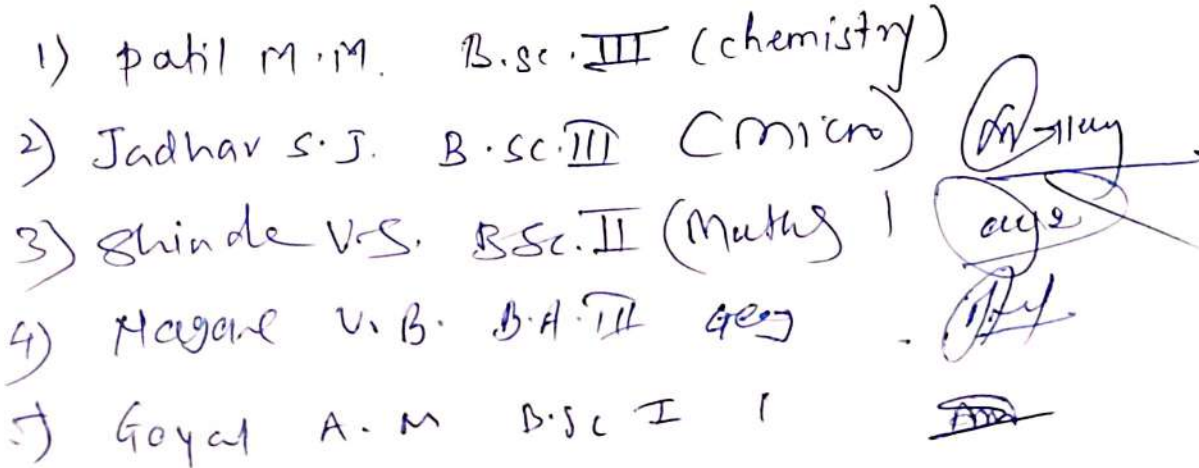 1) Patil M.M. B.sc. III (chemistry)
2) Jadhav S.J. B.SC. III (micro)
3) Shinde V.S. BSc. II (Maths)
4) V.B. B.A. III Geog
5) Goyal A.M B.Sc I